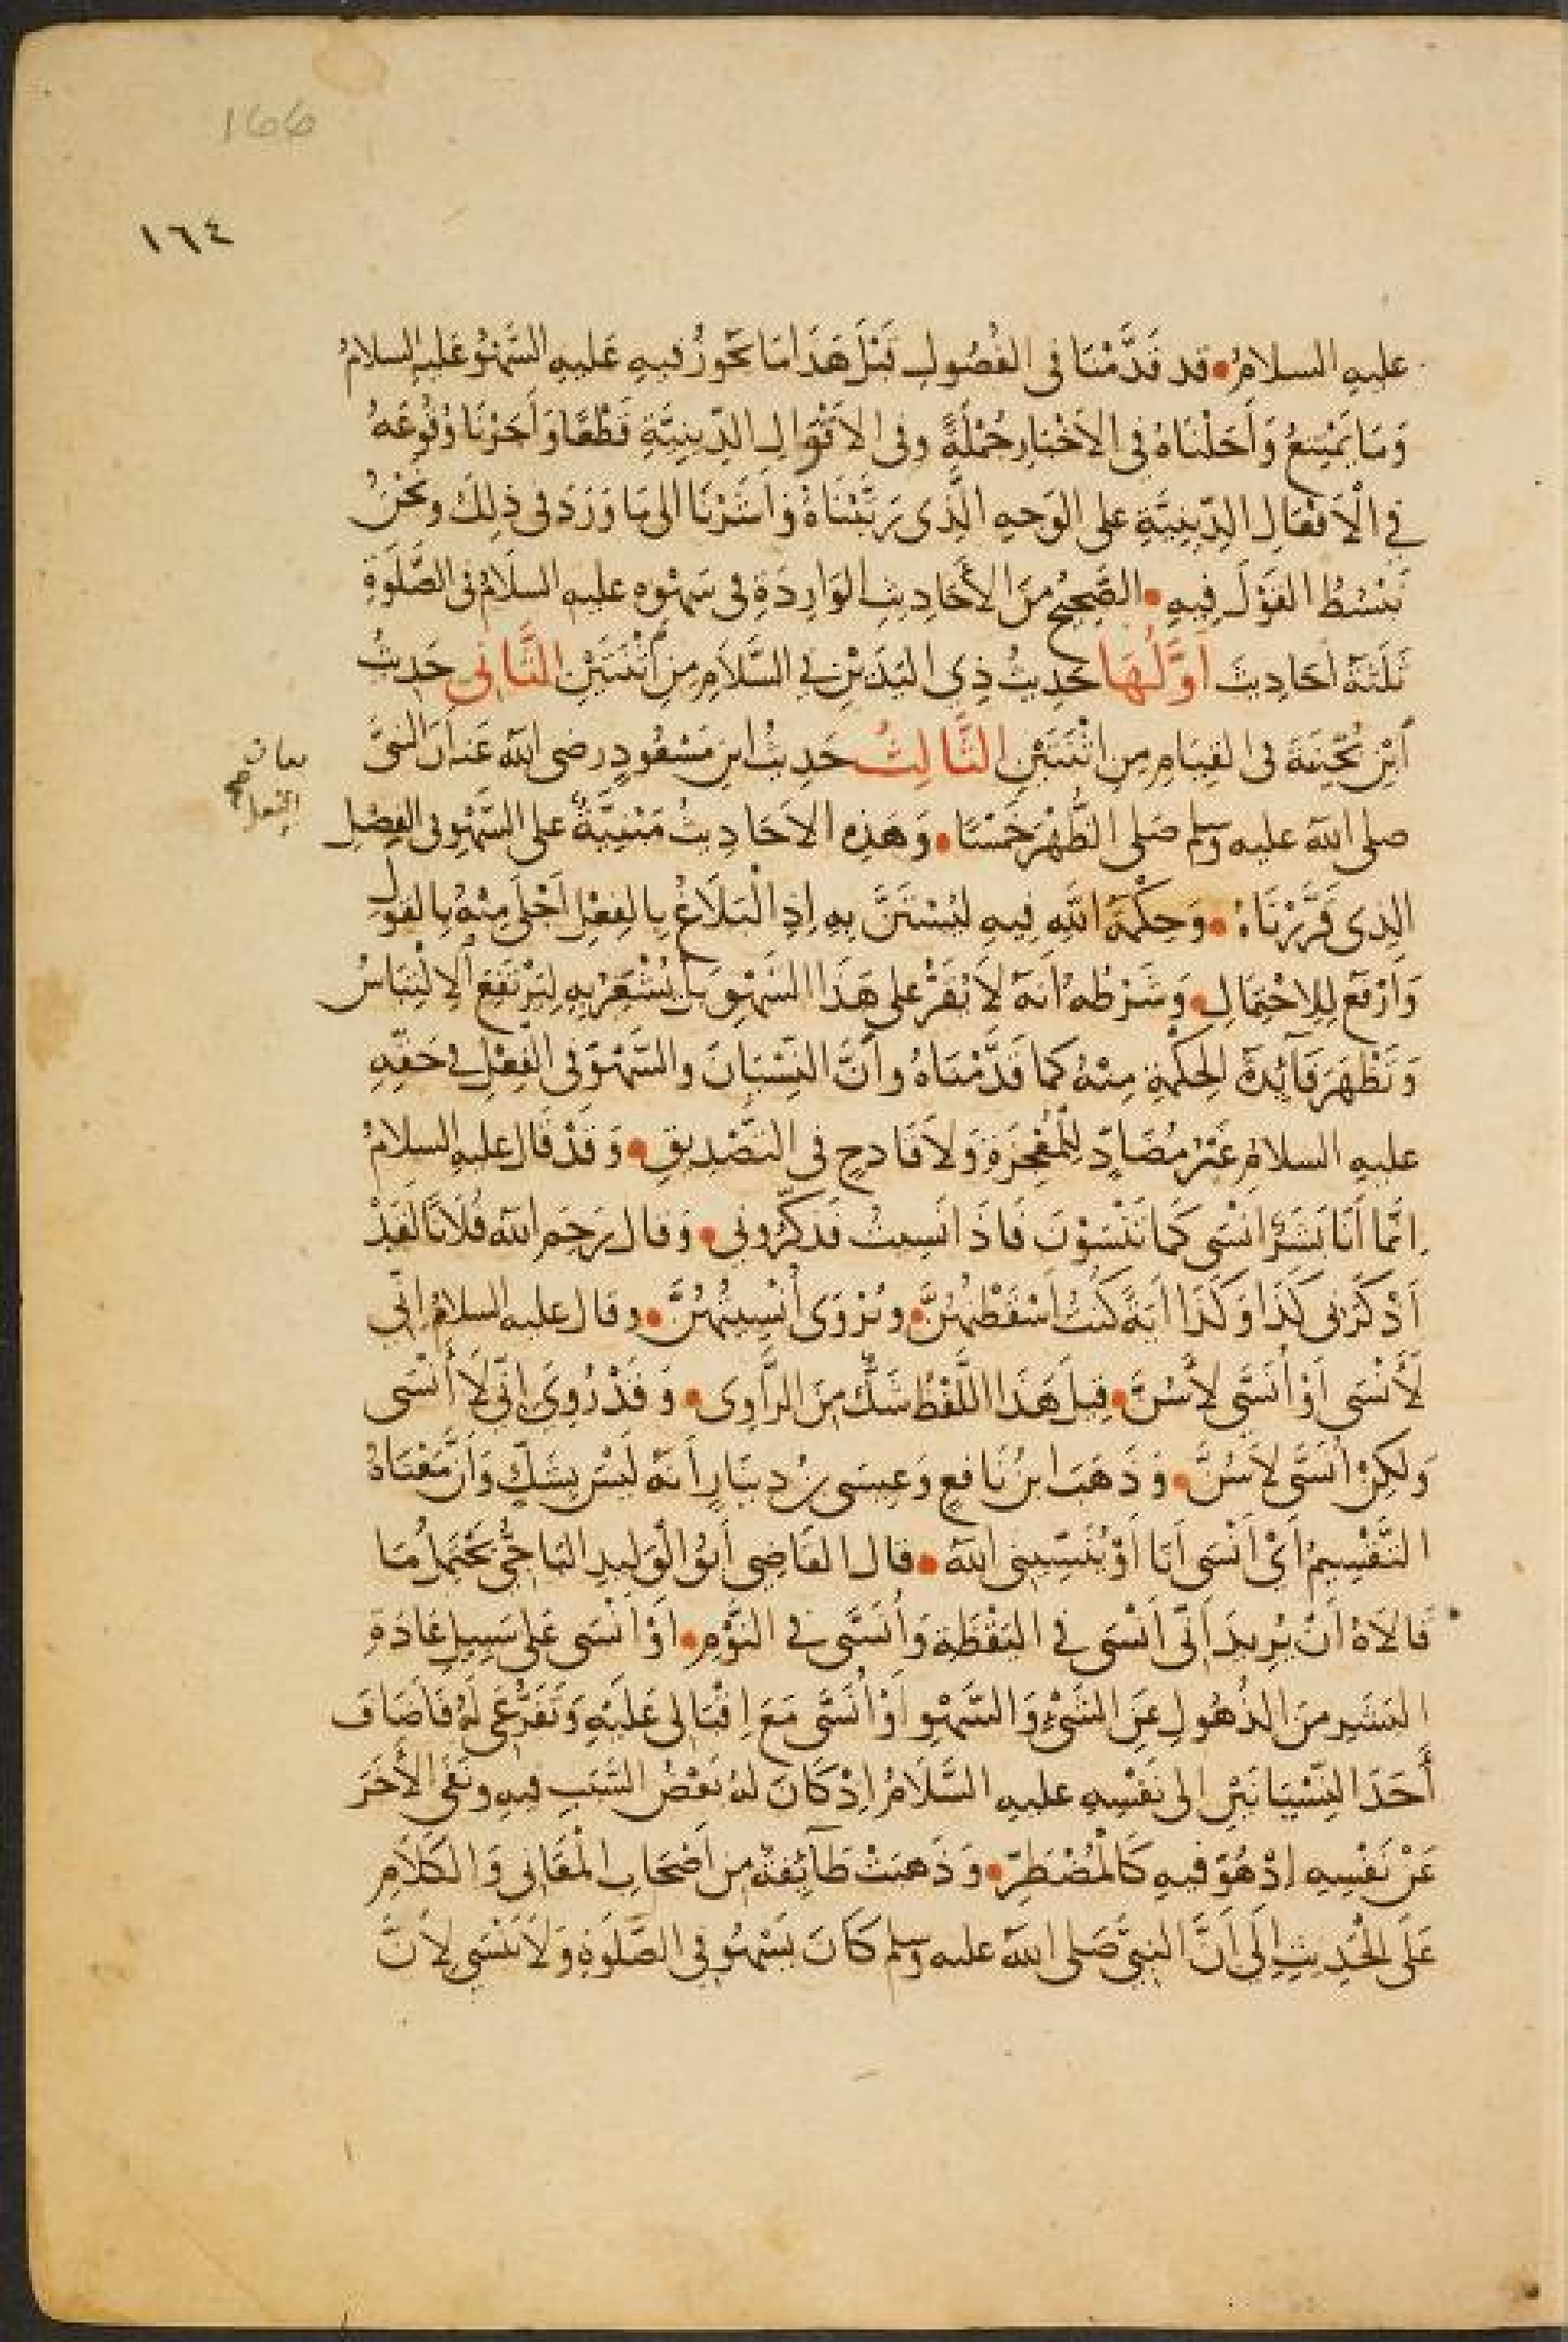 166
١٦٤
عليهِ السلامُ • قد قَدَّمْنَا فى الفُصُولِ قَبْلَ هَذَا مَا يَجُوزُ فيهِ عَليهِ السَّهْوُ عَليهِ السلامُ
وَمَا يَمْتَنِعُ وَأَحَلْنَاهُ فِى الأَخْبَارِ جُمْلَةً وفى الأَقْوَالِ الدِّينِيَّةِ قَطْعًا وَأَجَزْنَا وُقُوعَهُ
فِي الْأَفْعَالِ الدِّينِيَّةِ على الوَجهِ الَّذِى رَتَّبْنَاهُ وَأَشَرْنَا الى مَا وَرَدَ فى ذلِكَ ونَحْنُ
نَبْسُطُ القَوْلَ فِيهِ • الصَّحِيحُ مِنَ الأَحَادِيثِ الوَارِدَةِ فى سَهْوِهِ عليهِ السلَامُ فى الصَّلَوةِ
ثَلثَةُ أحَادِيثَ أَوَّلُهَا حَدِيثُ ذِي اليَدَيْنِ فِي السَّلَامِ مِنِ اثْنَتَيْنِ الثَّانِى حَدِيثُ
ابْنِ بُحَيْنَةَ فى القِيَامِ مِنِ اثْنَتَيْنِ الثَّالِثُ حَدِيثُ ابنِ مَسْعُودٍ رضى الله عَنهُ أنَّ النبىَّ
صلى الله عليه وسلم صَلى الظُّهْرَ خَمْسًا • وَهَذِهِ الأحَادِيثُ مَبْنِيَّةٌ على السَّهْوِ فى الفِعْلِ
الذِى قَرَّرْنَاهُ • وَحِكْمَةُ اللهِ فِيهِ لِيُسْتَنَّ بِهِ إِذِ الْبَلَاغُ بِالفِعْلِ أَجْلَى مِنْهُ بِالقَولِ
وَارْفَع لِلِاحْتِمَالِ • وَشَرْطُهُ أنَّهُ لَا يُقَرُّ على هَذَا السَّهْوِ بَلْ يُشْعَرُ بِهِ لِيَرْتَفِعَ الِالْتِبَاسُ
وَتَظْهَرَ فَائِدَةُ الحِكْمَةِ مِنْهُ كما قَدَّمْنَاهُ وأَنَّ النِّسْيَانَ والسَّهْوَ فى الْفِعْلِ فى حَقِّهِ
عليهِ السلامُ غَيْرُ مُضَادٍّ لِلْمُعْجِزَةِ وَلَا قَادِحٍ فى التَّصْدِيقِ • وَقَدْ قَالَ عليهِ السلامُ
إنَّما أنَا بَشَرٌ أَنْسَى كَمَا تَنْسَوْنَ فَاذَا نَسِيتُ فَذَكِّرُونِى • وقالَ رَحِمَ اللهُ فُلَانًا لَقَدْ
أَذْكَرَنِى كَذَا وَكَذَا آيَةً كُنْتُ أسْقَطْتُهُنَّ • ويُرْوَى أُنْسِيتُهُنَّ • وقال عليه السلامُ انِّى
لَأَنْسَى أَوْ أُنَسَّى لِأَسُنَّ • قِيلَ هَذَا اللَّفْظُ شَكٌّ مِنَ الرَّاوِى • وَقَدْ رُوِىَ إِنِّى لَا أَنْسَى
وَلَكِنْ أُنَسَّى لِأَسُنَّ • وَذَهَبَ ابنُ نَافِعٍ وَعِيسَى بنُ دِينَارٍ أنَّهُ لَيْسَ بِشَكٍّ وَأَنَّ مَعْنَاهُ
التَّقْسِيمُ أَىْ أَنْسَى أنَا أَوْ يُنَسِّينِى اللهُ • قال القَاضِى أَبُو الْوَلِيدِ البَاجِىُّ يَحْتَمِلُ مَا
قَالَاهُ أَنْ يُرِيدَ أَنِّى أَنْسَى فى اليَقَظَةِ وَأُنَسَّى فى النَّوْمِ • أَوْ أَنْسَى عَلى سَبِيلِ عَادَةِ
البَشَرِ مِنَ الذُّهُولِ عَنِ الشَّىْءِ وَالسَّهْوِ أَوْ أُنَسَّى مَعَ إِقْبَالِى عَلَيْهِ وَتَفَرُّغِى لَهُ فَأَضَافَ
أَحَدَ النِّسْيَانَيْنِ الى نَفْسِهِ عليهِ السَّلَامُ إِذْ كَانَ لَهُ بَعْضُ السَّبَبِ فِيهِ ونَفَى الْأَخَرَ
عَنْ نَفْسِهِ إِذْ هُوَ فِيهِ كَالْمُضْطَرِّ • وَذَهَبَتْ طَآئِفَةٌ مِن أَصْحَابِ الْمَعَانِى وَالكَلَامِ
عَلَى الْحَدِيثِ إِلَى أَنَّ النبِىَّ صَلى اللهُ عليه وسلم كَانَ يَسْهُو فِى الصَّلَوةِ وَلَا يَنْسَى لِأَنَّ